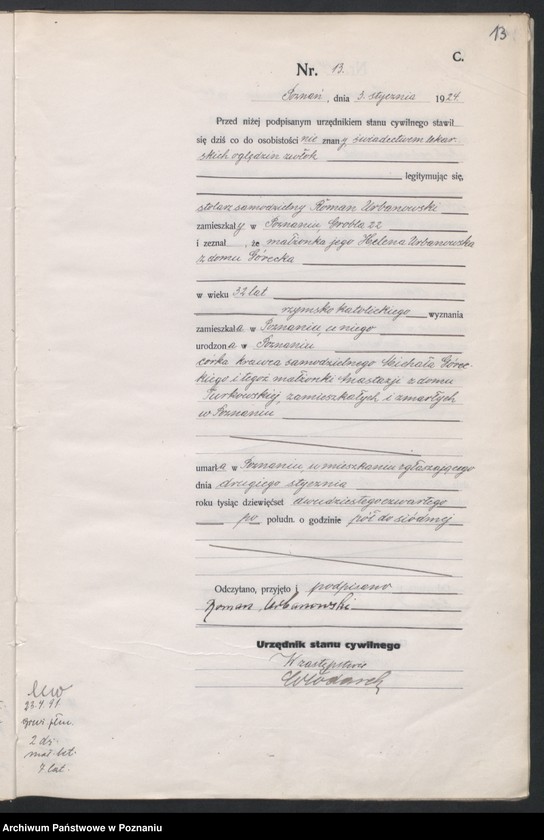 13
C.
Nr. 13.
Poznań, dnia 3. stycznia 1924
Przed niżej podpisanym urzędnikiem stanu cywilnego stawił
się dziś co do osobistości nie znany świadectwem lekar-
skich oględzin zwłok
legitymując się,
stolarz samodzielny Roman Urbanowski
zamieszkały w Poznaniu, Grobla 22
i zeznał, że małżonka jego Helena Urbanowska
z domu Górecka
w wieku 32 lat
rzymsko katolickiego wyznania
zamieszkała w Poznaniu, u niego
urodzona w Poznaniu
córka krawca samodzielnego Michała Górec-
kiego i tegoż małżonki Anastazji z domu
Turkowskiej, zamieszkałych i zmarłych
w Poznaniu
umarła w Poznaniu, w mieszkaniu zgłaszającego
dnia drugiego stycznia
roku tysiąc dziewięćset dwudziestego czwartego
po połudn. o godzinie pół do siódmej
Odczytano, przyjęto i podpisano
Roman Urbanowski
Urzędnik stanu cywilnego
W zastępstwie
Włodarek
2 dz.
mał. lat.
7 lat.
Archiwum Państwowe w Poznaniu